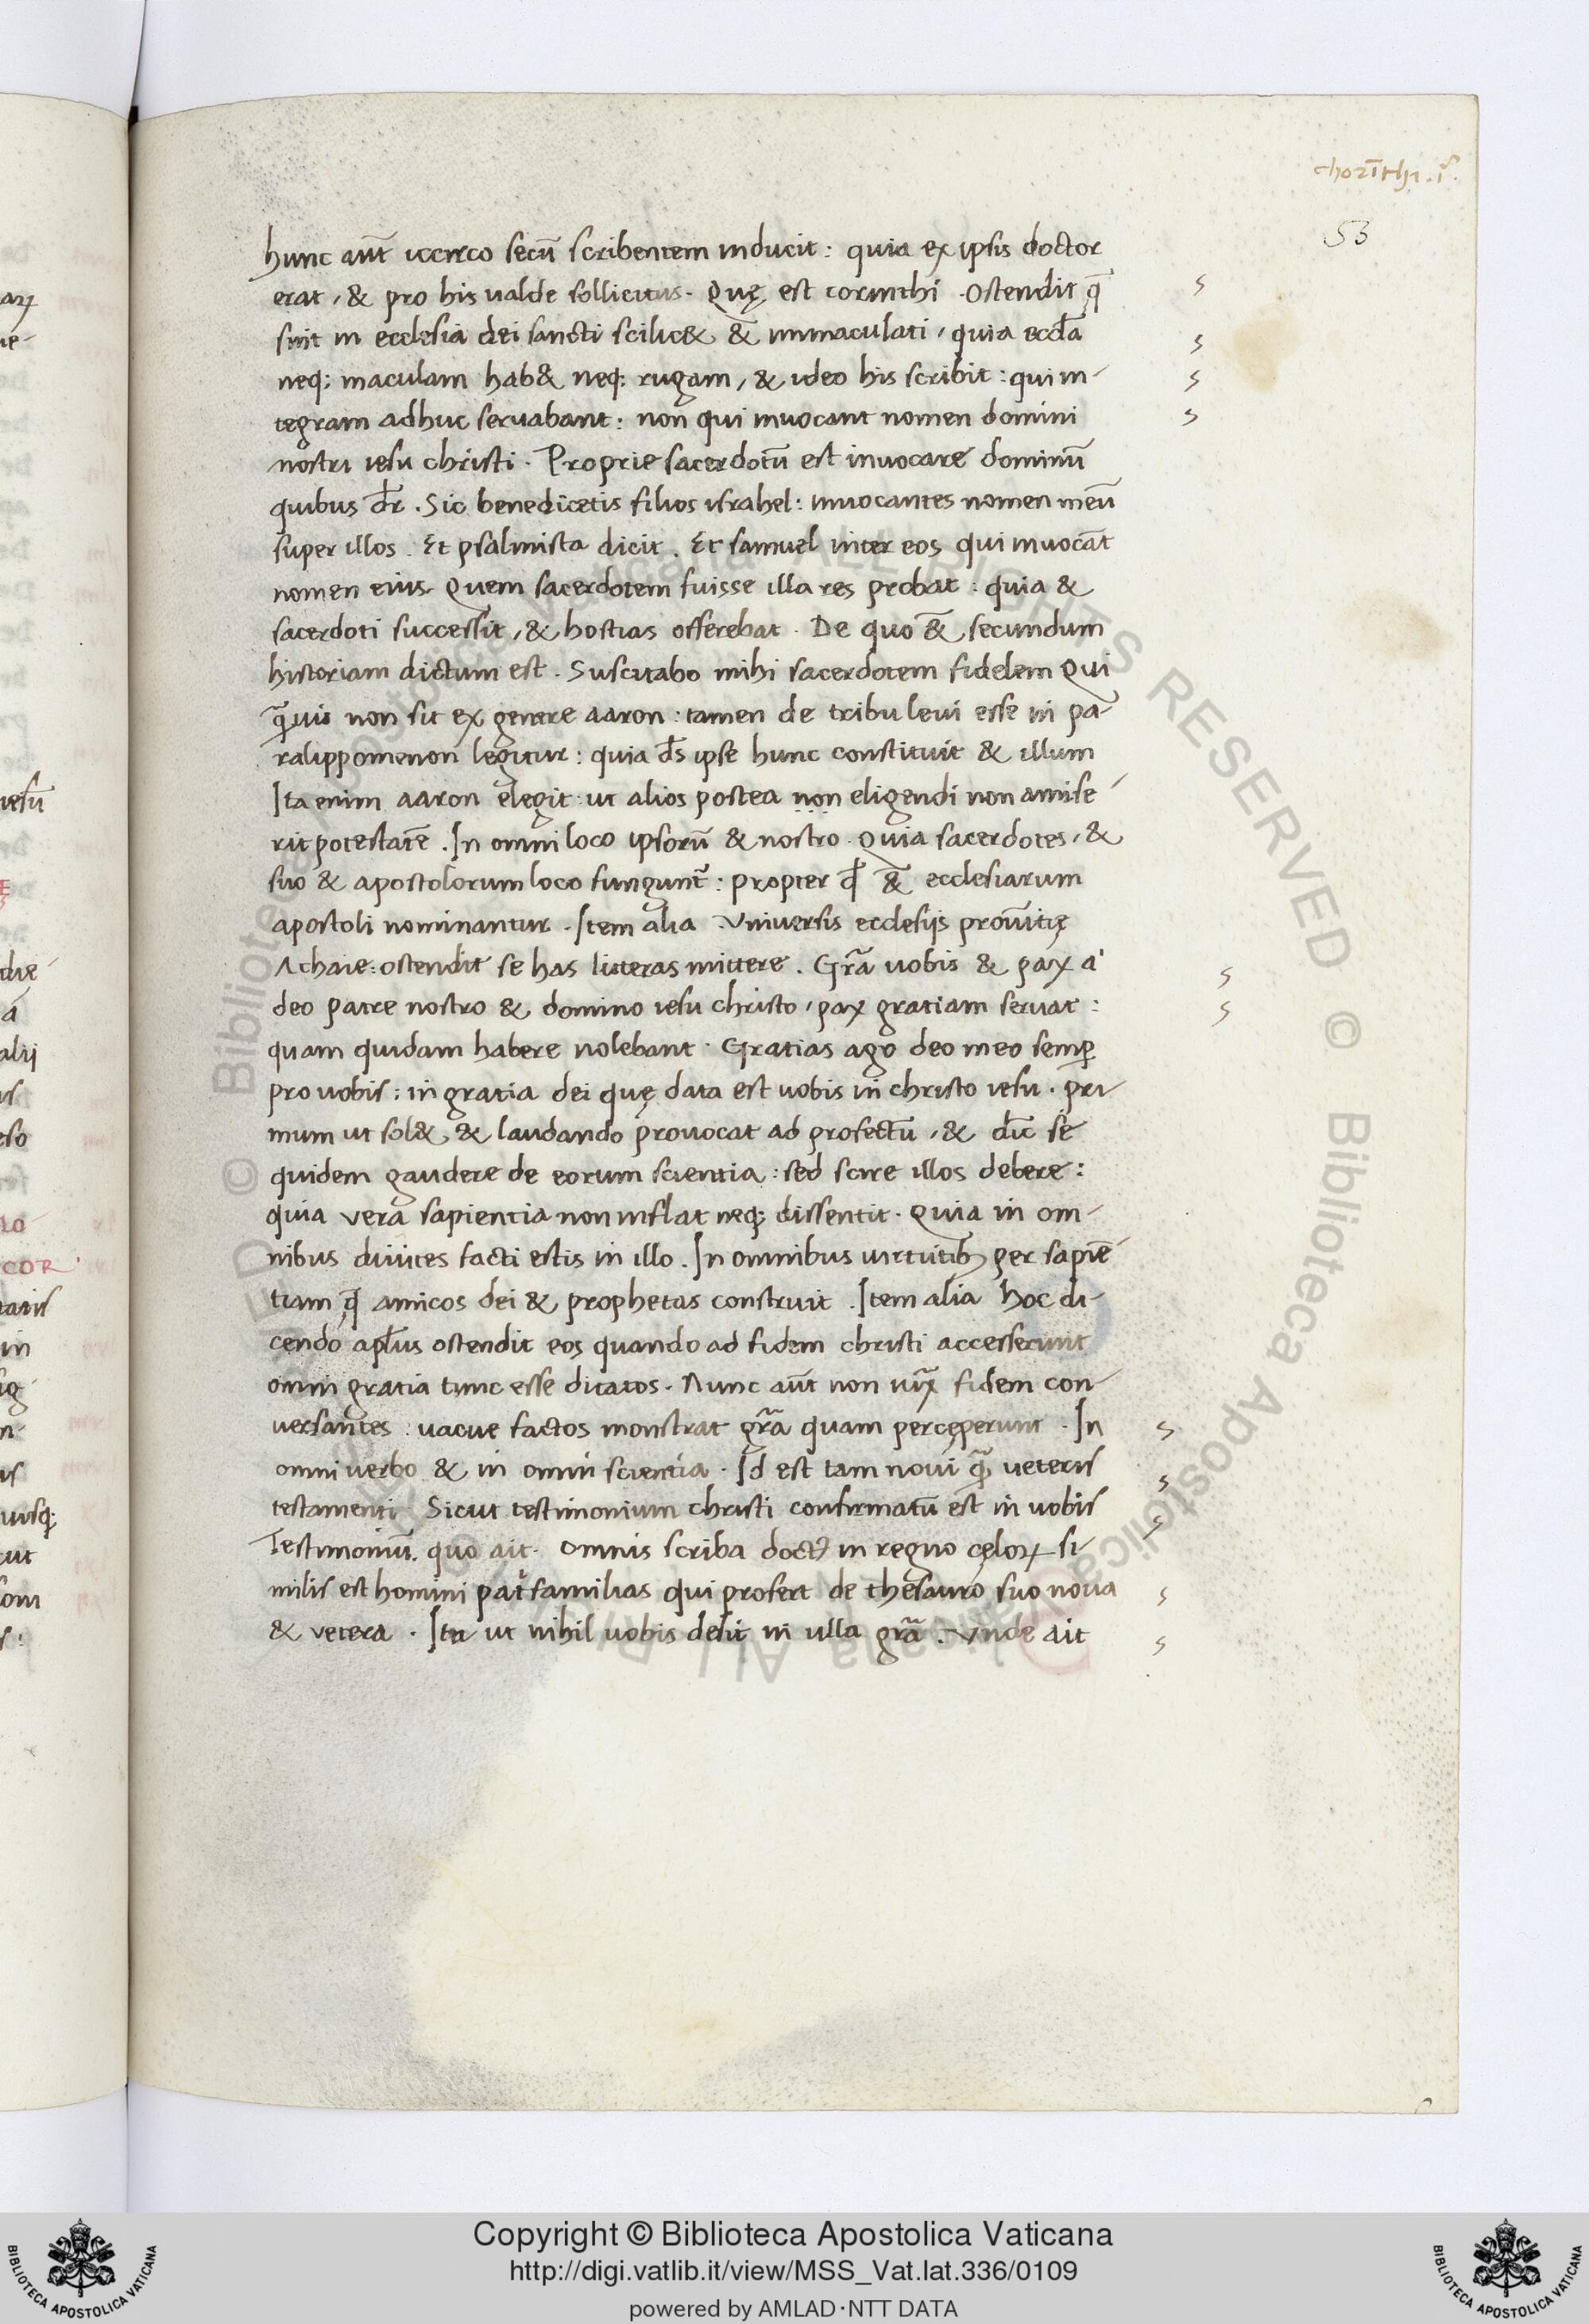 chorīthi . iͣ.
53
hunc aut̄ iccirco secū scribentem inducit : quia ex ipsis doctor
erat , & pro his ualde sollicitus . Quę est corinthi . Ostendit q̄
sint in ecclesia dei sancti scilic& &̄ immaculati , quia eccl̄a
neq; maculam hab& neq; rugam , & ideo his scribit : qui in-
tegram adhuc seruabant : non qui inuocant nomen domini
nostri iesu christi . Proprie sacerdotū est inuocare dominū
quibus dr̄ . Sic benedicetis filios israhel : inuocantes nomen meū
super illos . Et psalmista dicit . Et samuel inter eos qui inuocāt
nomen eius . Quem sacerdotem fuisse illa res probat : quia &
sacerdoti successit , & hostias offerebat . De quo &̄ secundum
historiam dictum est . Suscitabo mihi sacerdotem fidelem Qui
q̄uis non sit ex genere aaron : tamen de tribu leui esse in pa-
ralippomenon legitur : quia ds̄ ipse hunc constituit & illum
Ita enim aaron elegit : ut alios postea non eligendi non amise-
rit potestatē . In omni loco ipsorū & nostro . Quia sacerdotes , &
suo & apostolorum loco fungunt᷑ : propter qđ &̄ ecclesiarum
apostoli nominantur . Item alia . Vniuersis ecclesijs prouītię
Achaie : ostendit se has litteras mittere . Grā uobis & pax a
deo patre nostro & domino iesu christo , pax gratiam seruat :
quam quidam habere nolebant . Gratias ago deo meo semꝑ
pro uobis : in gratia dei quę data est uobis in christo iesu . pri-
mum ut sol& , & laudando prouocat ad profectū , & dic̄ se
quidem gaudere de eorum scientia : sed scire illos debere :
quia vera sapientia non inflat neq; dissentit . Quia in om-
nibus diuites facti estis in illo . In omnibus uirtutibꝫ per sapiē-
tiam q̄ amicos dei & prophetas construit . Item alia hoc di-
cendo apl̄us ostendit eos quando ad fidem christi accesserunt
omni gratia tunc esse ditatos . Nunc aut̄ non iuxͣ fidem con-
versantes : vacue factos monstrat grā quam percęperunt . In
omni uerbo & in omni scientia . Id est tam noui q̄ ueteris
testamenti Sicut testimonium christi confirmatū est in uobis
Testimoniū . quo ait . Omnis scriba doctꝰ in regno cęloꝝ si-
milis est homini pat̄familias qui profert de thesauro suo noua
& vetera . Ita ut nihil uobis desit in ulla grā . Vnde ait
© Biblioteca Apostolica Vaticana ALL RIGHTS RESERVED
Copyright © Biblioteca Apostolica Vaticana
http://digi.vatlib.it/view/MSS_Vat.lat.336/0109
powered by AMLAD·NTT DATA
BIBLIOTECA APOSTOLICA VATICANA
BIBLIOTECA APOSTOLICA VATICANA